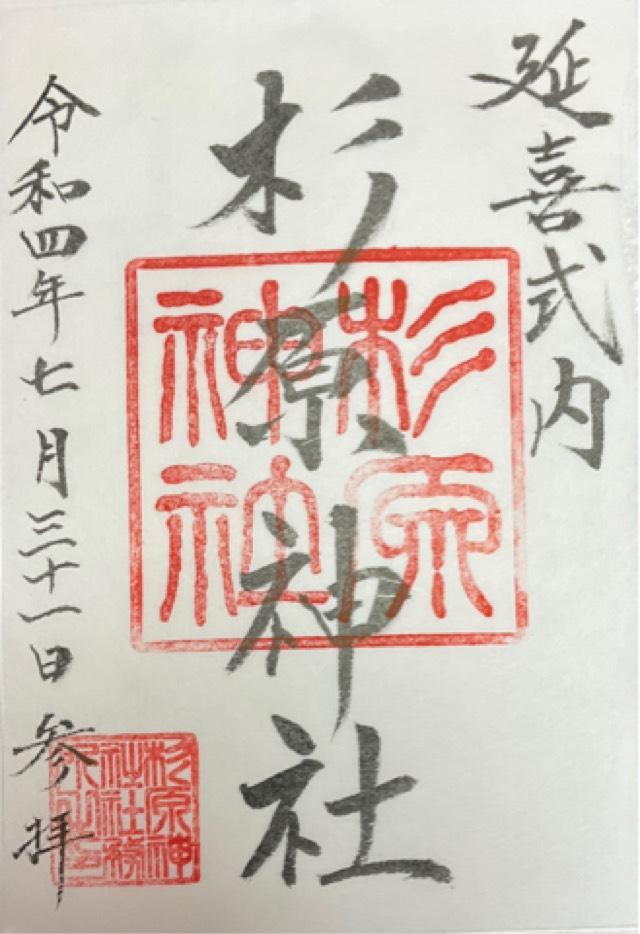 延喜式内
杉原神社
杉原
神社
令和四年七月三十一日参拝
杉原神
社社務